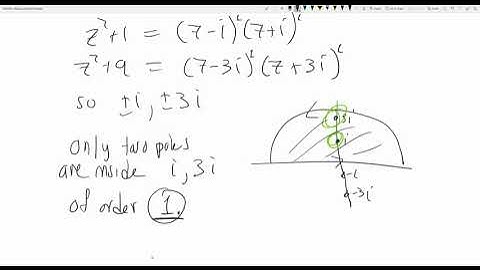 z²+1 = (z-i)^2(z+i)^2
z²+9 = (z-3i)^2(z+3i)^2
so ±i, ±3i
only two poles
are inside i, 3i
of order 1.
3i
i
-i
-3i